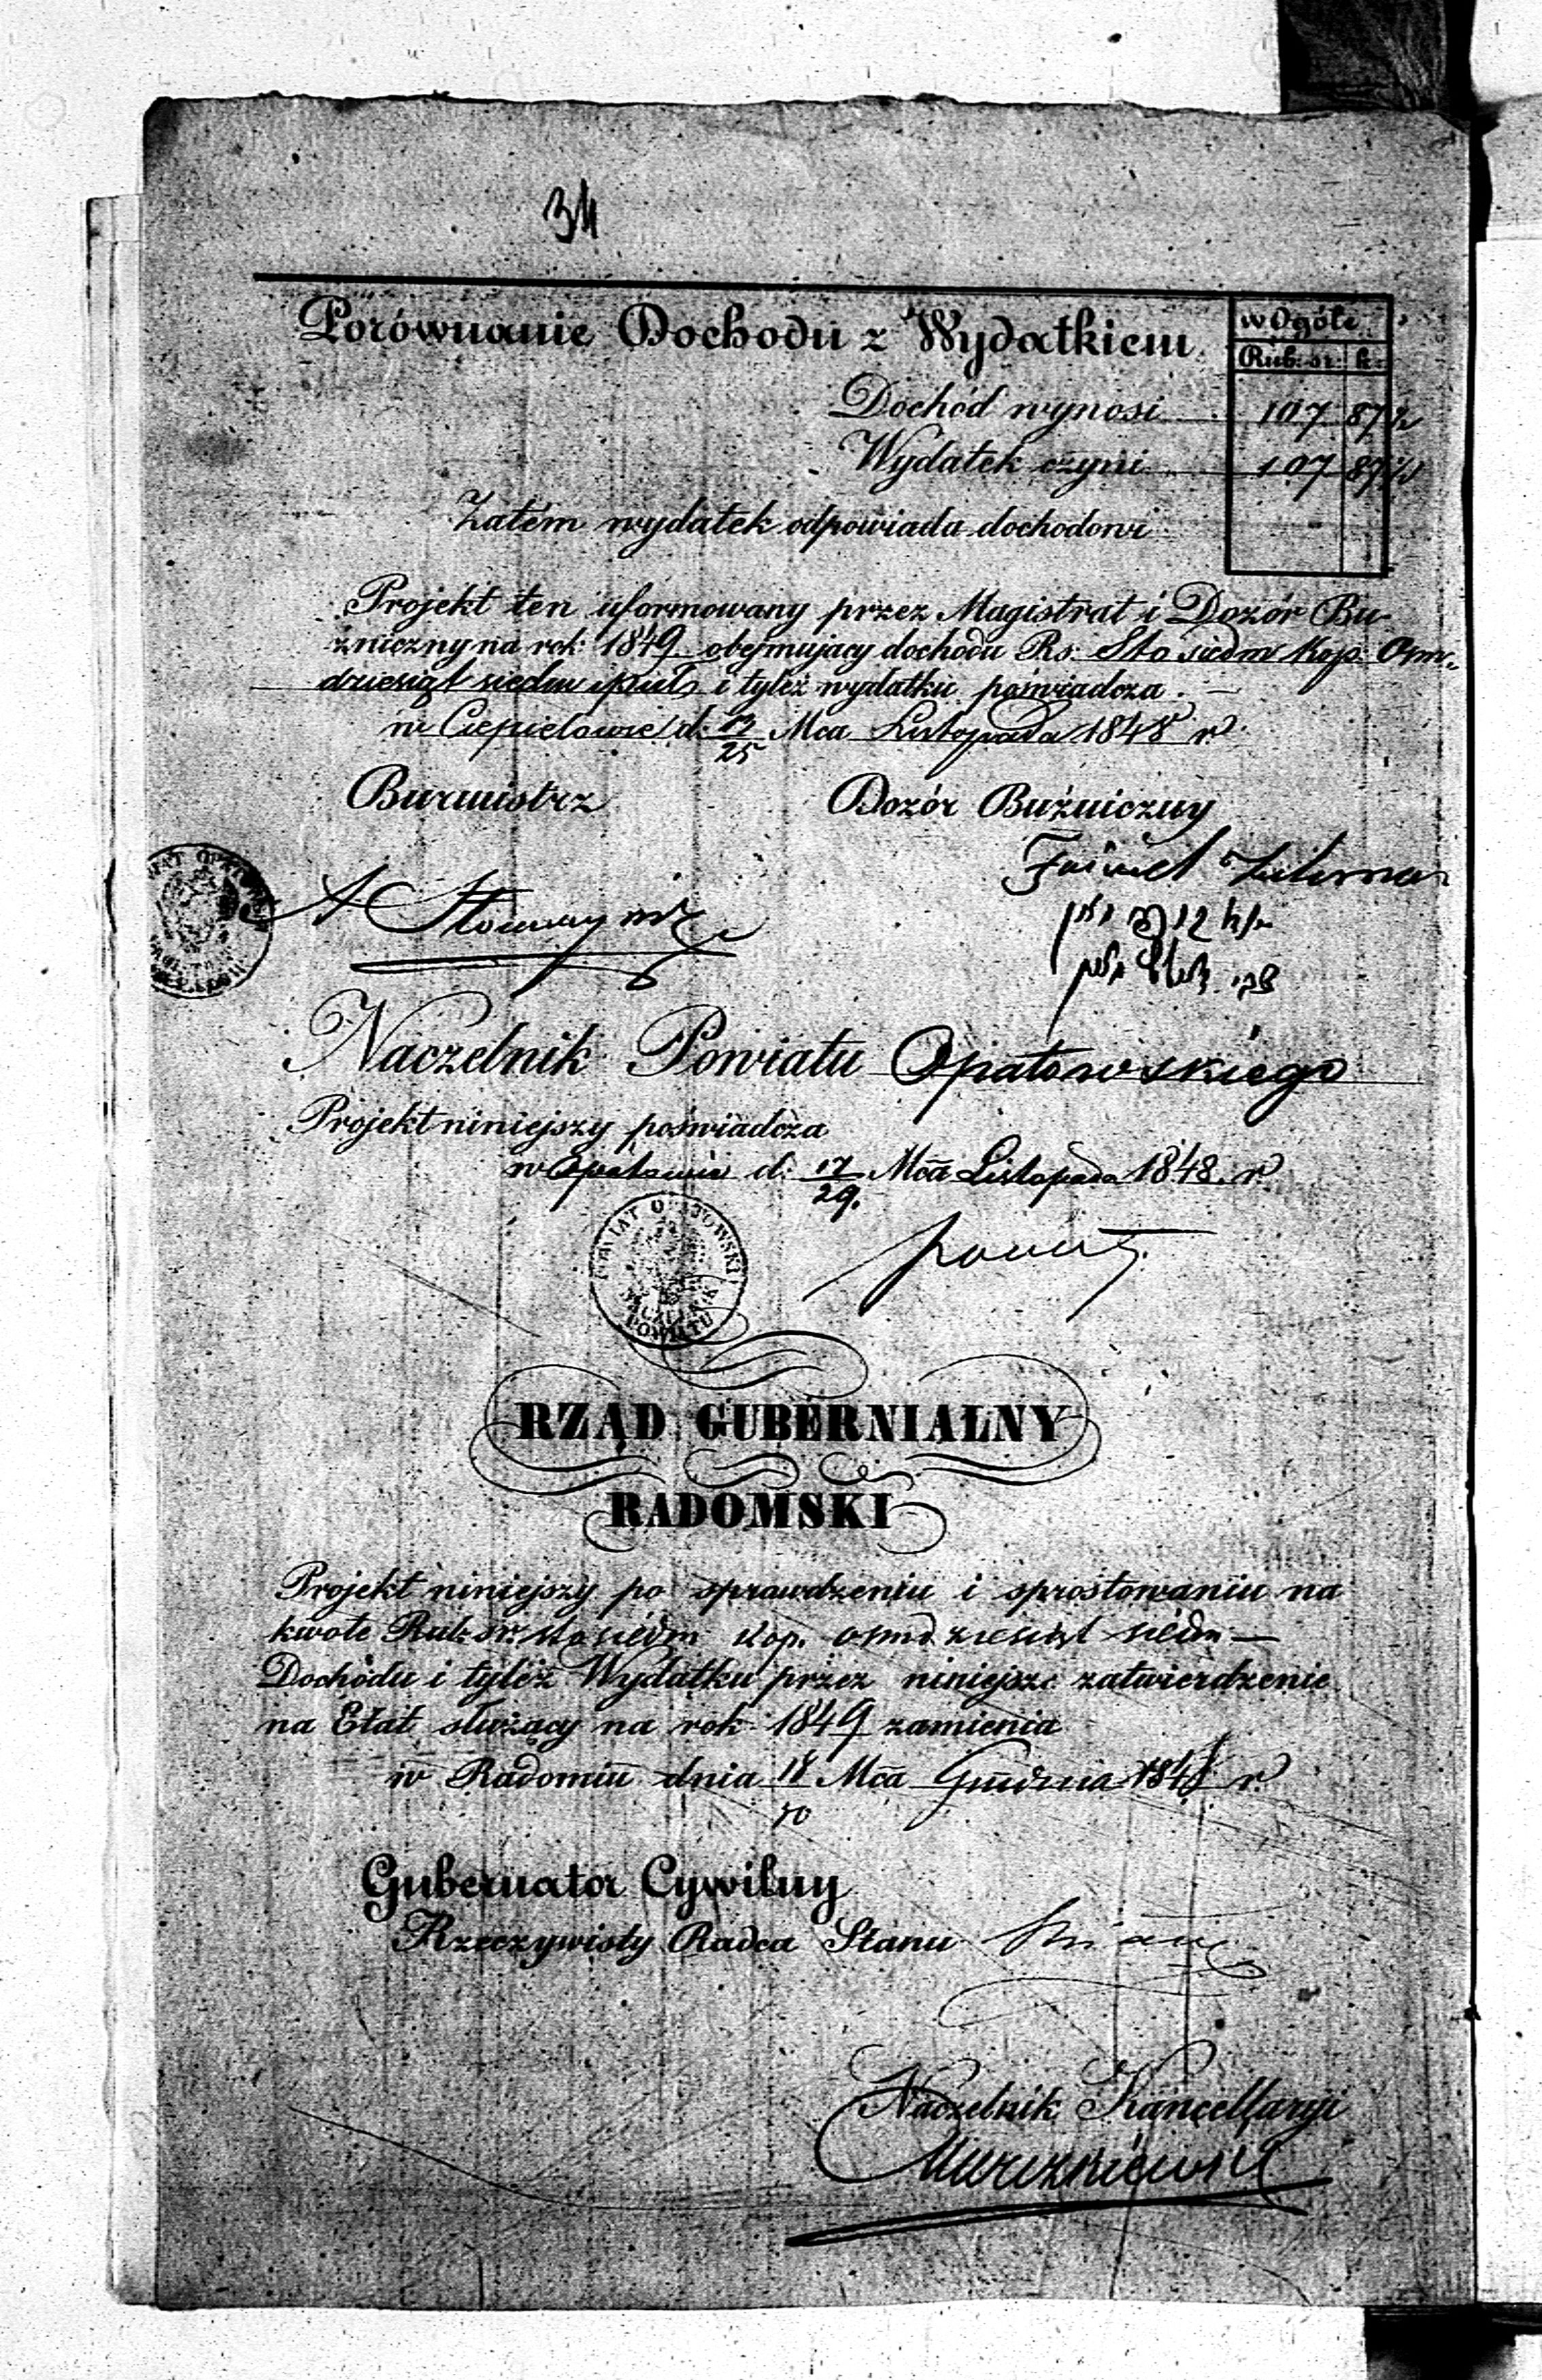 34
Porównanie Dochodu z Wydatkiem.
w Ogóle
Rub: sr: k:
Dochód wynosi 107 87 1/2
Wydatek czyni 107 87 1/2
Zatém wydatek odpowiada dochodowi
Projekt ten uformowany przez Magistrat i Dozór Bu-
żniczny na rok 1849 obejmujący dochodu Rs: Sto siedm Kop. Osm-
dziesiąt siedm i pół i tyleż wydatku poswiadcza.
w Ciepielowie d: 13/25 Mca Listopada 1848 r.
Burmistrz Dozór Buźniczny
Naczelnik Powiatu Opatowskiégo
Projekt niniejszy poświadcza
w Opatowie d: 17/29. Mca Listopada 1848. r.
POWIAT OPATOWSKI
NACZELNIK
POWIATU
RZĄD GUBERNIALNY
RADOMSKI
Projekt niniejszy po sprawdzeniu i sprostowaniu na
kwotę Rub: sr: sto siédm kop. osmdziesiąt siédm —
Dochodu i tyléż Wydatku przez niniejsze zatwierdzenie
na Etat służący na rok 1849 zamienia
w Radomiu dnia 18 Mca Grudnia 1848 r.
30
Gubernator Cywilny
Rzeczywisty Radca Stanu
Naczelnik Kancellaryi